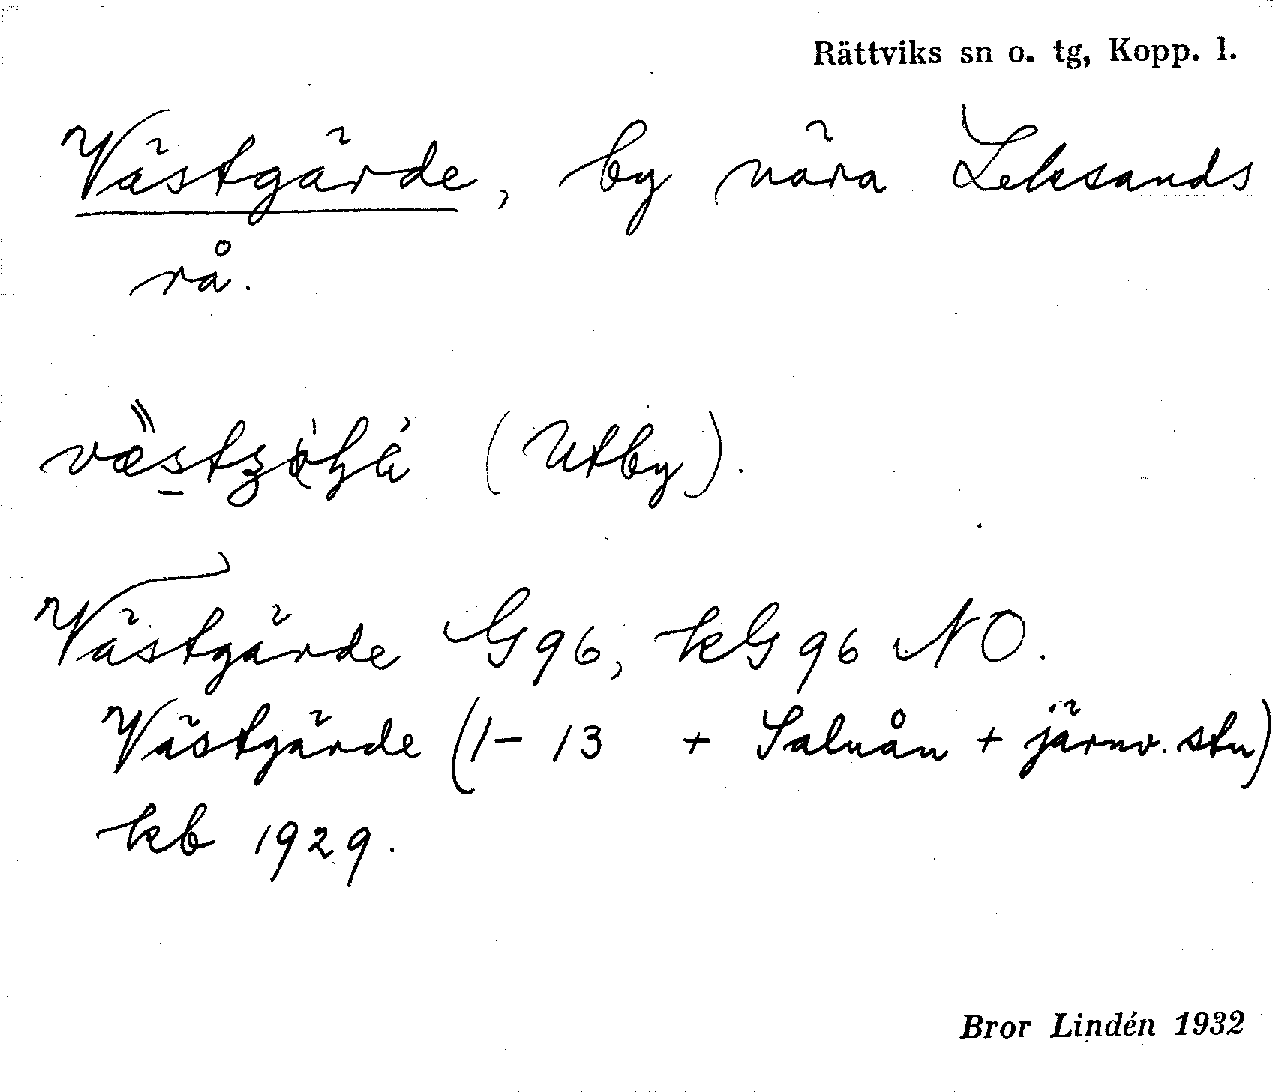 Rättviks sn o. tg, Kopp. l.
Västgärde, by nära Leksands
rå.
(Utby).
Västgärde G96, kG96 NO.
Västgärde (1-13 + Salunån + järnv. stn)
kb 1929.
Bror Lindén 1932